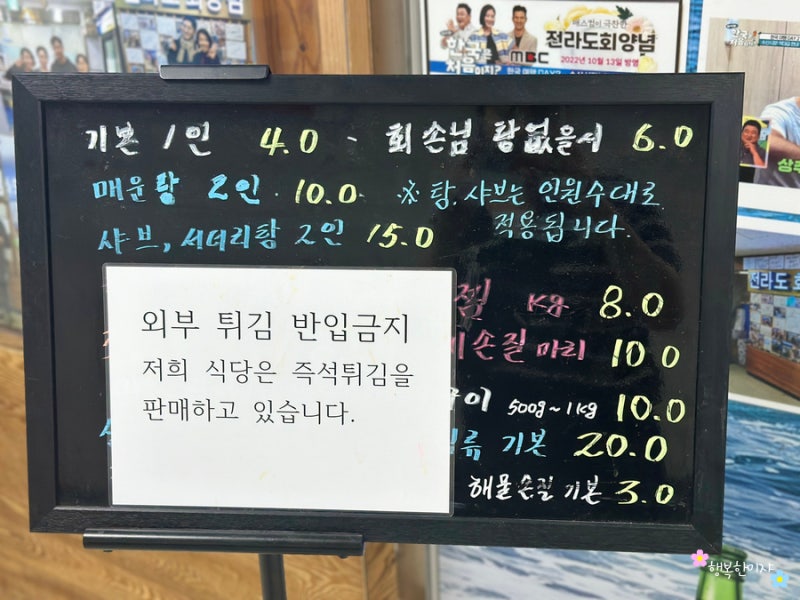 매스컴이 극찬한
전라도회양념
처음이지?
MBC
2022년 10월 13일 방영
기본 1인 4.0 - 회손님 탕없을시 6.0
매운탕 2인 · 10.0 ※ 탕, 샤브는 인원수대로
적용됩니다.
샤브, 서더리탕 2인 15.0
외부 튀김 반입금지
저희 식당은 즉석튀김을
판매하고 있습니다.
kg 8.0
손질 마리 10.0
500g~1kg 10.0
류 기본 20.0
해물손질 기본 3.0
전라도
행복한미자